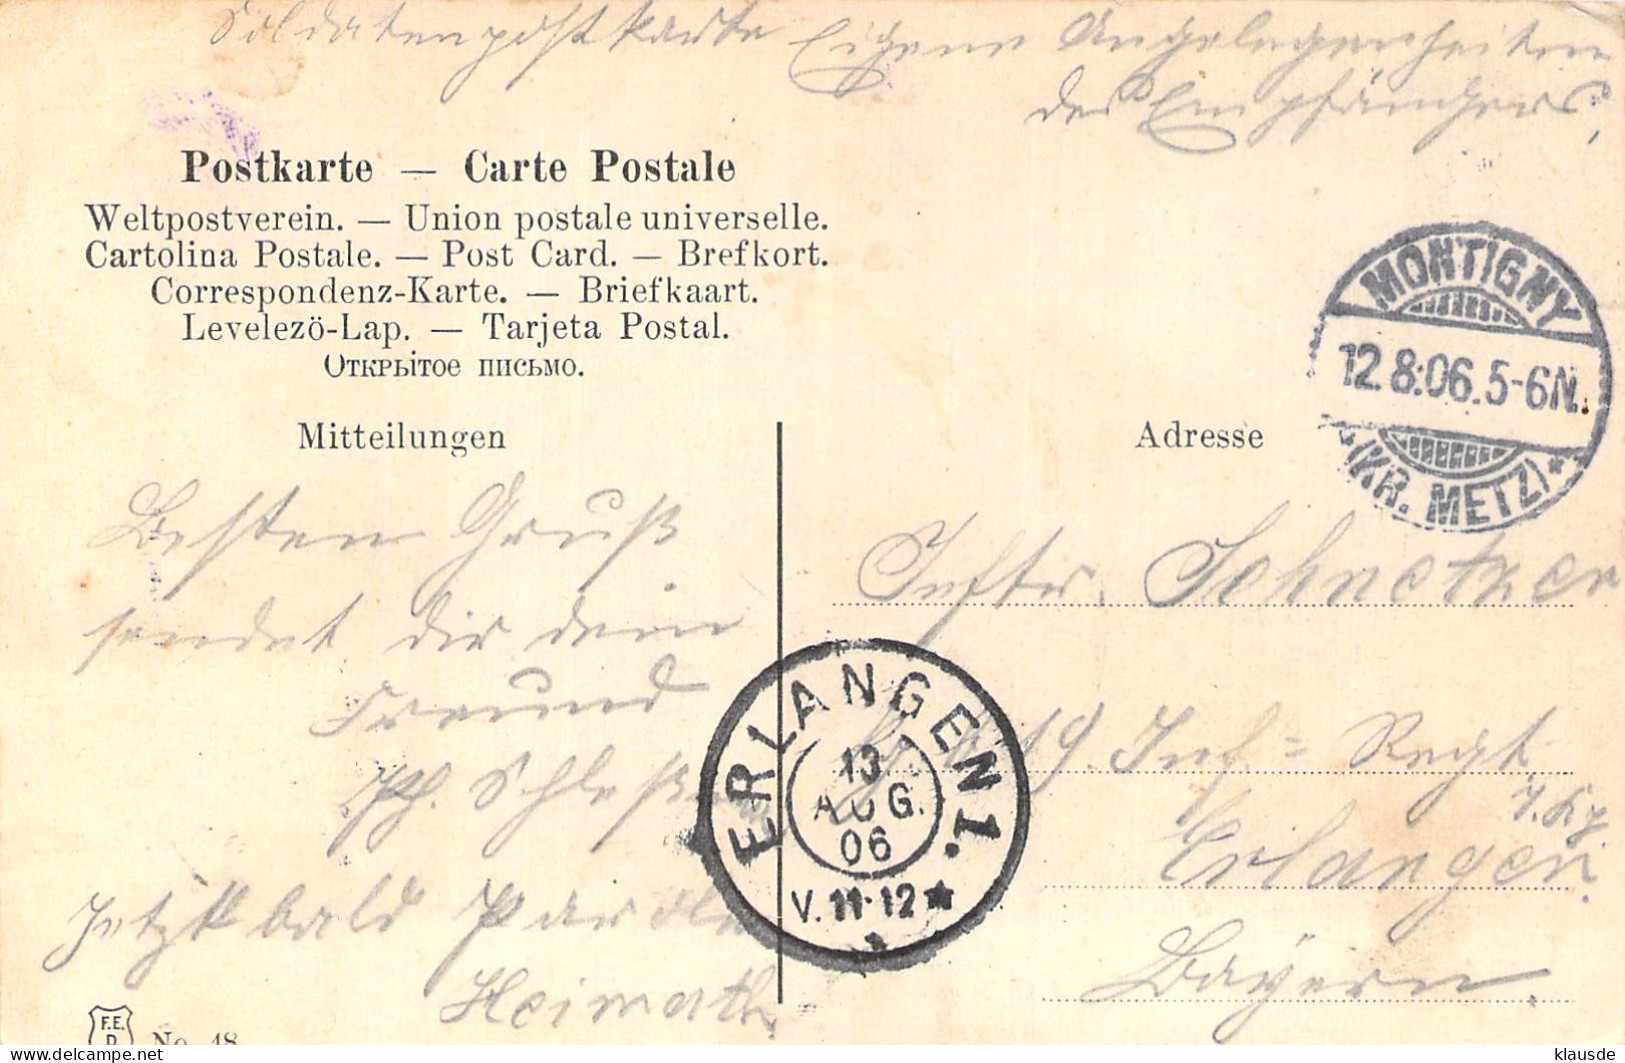 Soldatenpostkarte Eigene Angelegenheiten
des Empfängers,
Postkarte — Carte Postale
Weltpostverein. — Union postale universelle.
Cartolina Postale. — Post Card. — Brefkort.
Correspondenz-Karte. — Briefkaart.
Levelezö-Lap. — Tarjeta Postal.
Открытое письмо.
Mitteilungen
Besten Gruß
sendet dir dein
Freund
Ph.
Jetzt bald Parole
Heimath
F.E.
No. 48
Adresse
MONTIGNY
12.8.06.5-6N.
(KR. METZ)
Inftr. Schnetzer
19. Inf = Regt.
Erlangen.
Bayern.
ERLANGEN 1.
13
AUG.
06
V. 11-12
klausde
delcampe.net